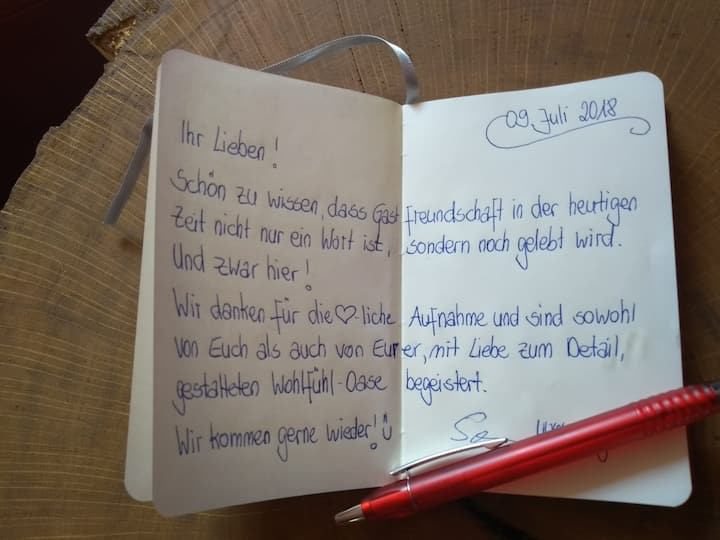 09. Juli 2018
Ihr Lieben!
Schön zu wissen, dass Gastfreundschaft in der heutigen
Zeit nicht nur ein Wort ist, sondern noch gelebt wird.
Und zwar hier!
Wir danken für die ♡-liche Aufnahme und sind sowohl
von Euch als auch von Eurer, mit Liebe zum Detail,
gestalteten Wohlfühl-Oase begeistert.
Wir kommen gerne wieder! ☺